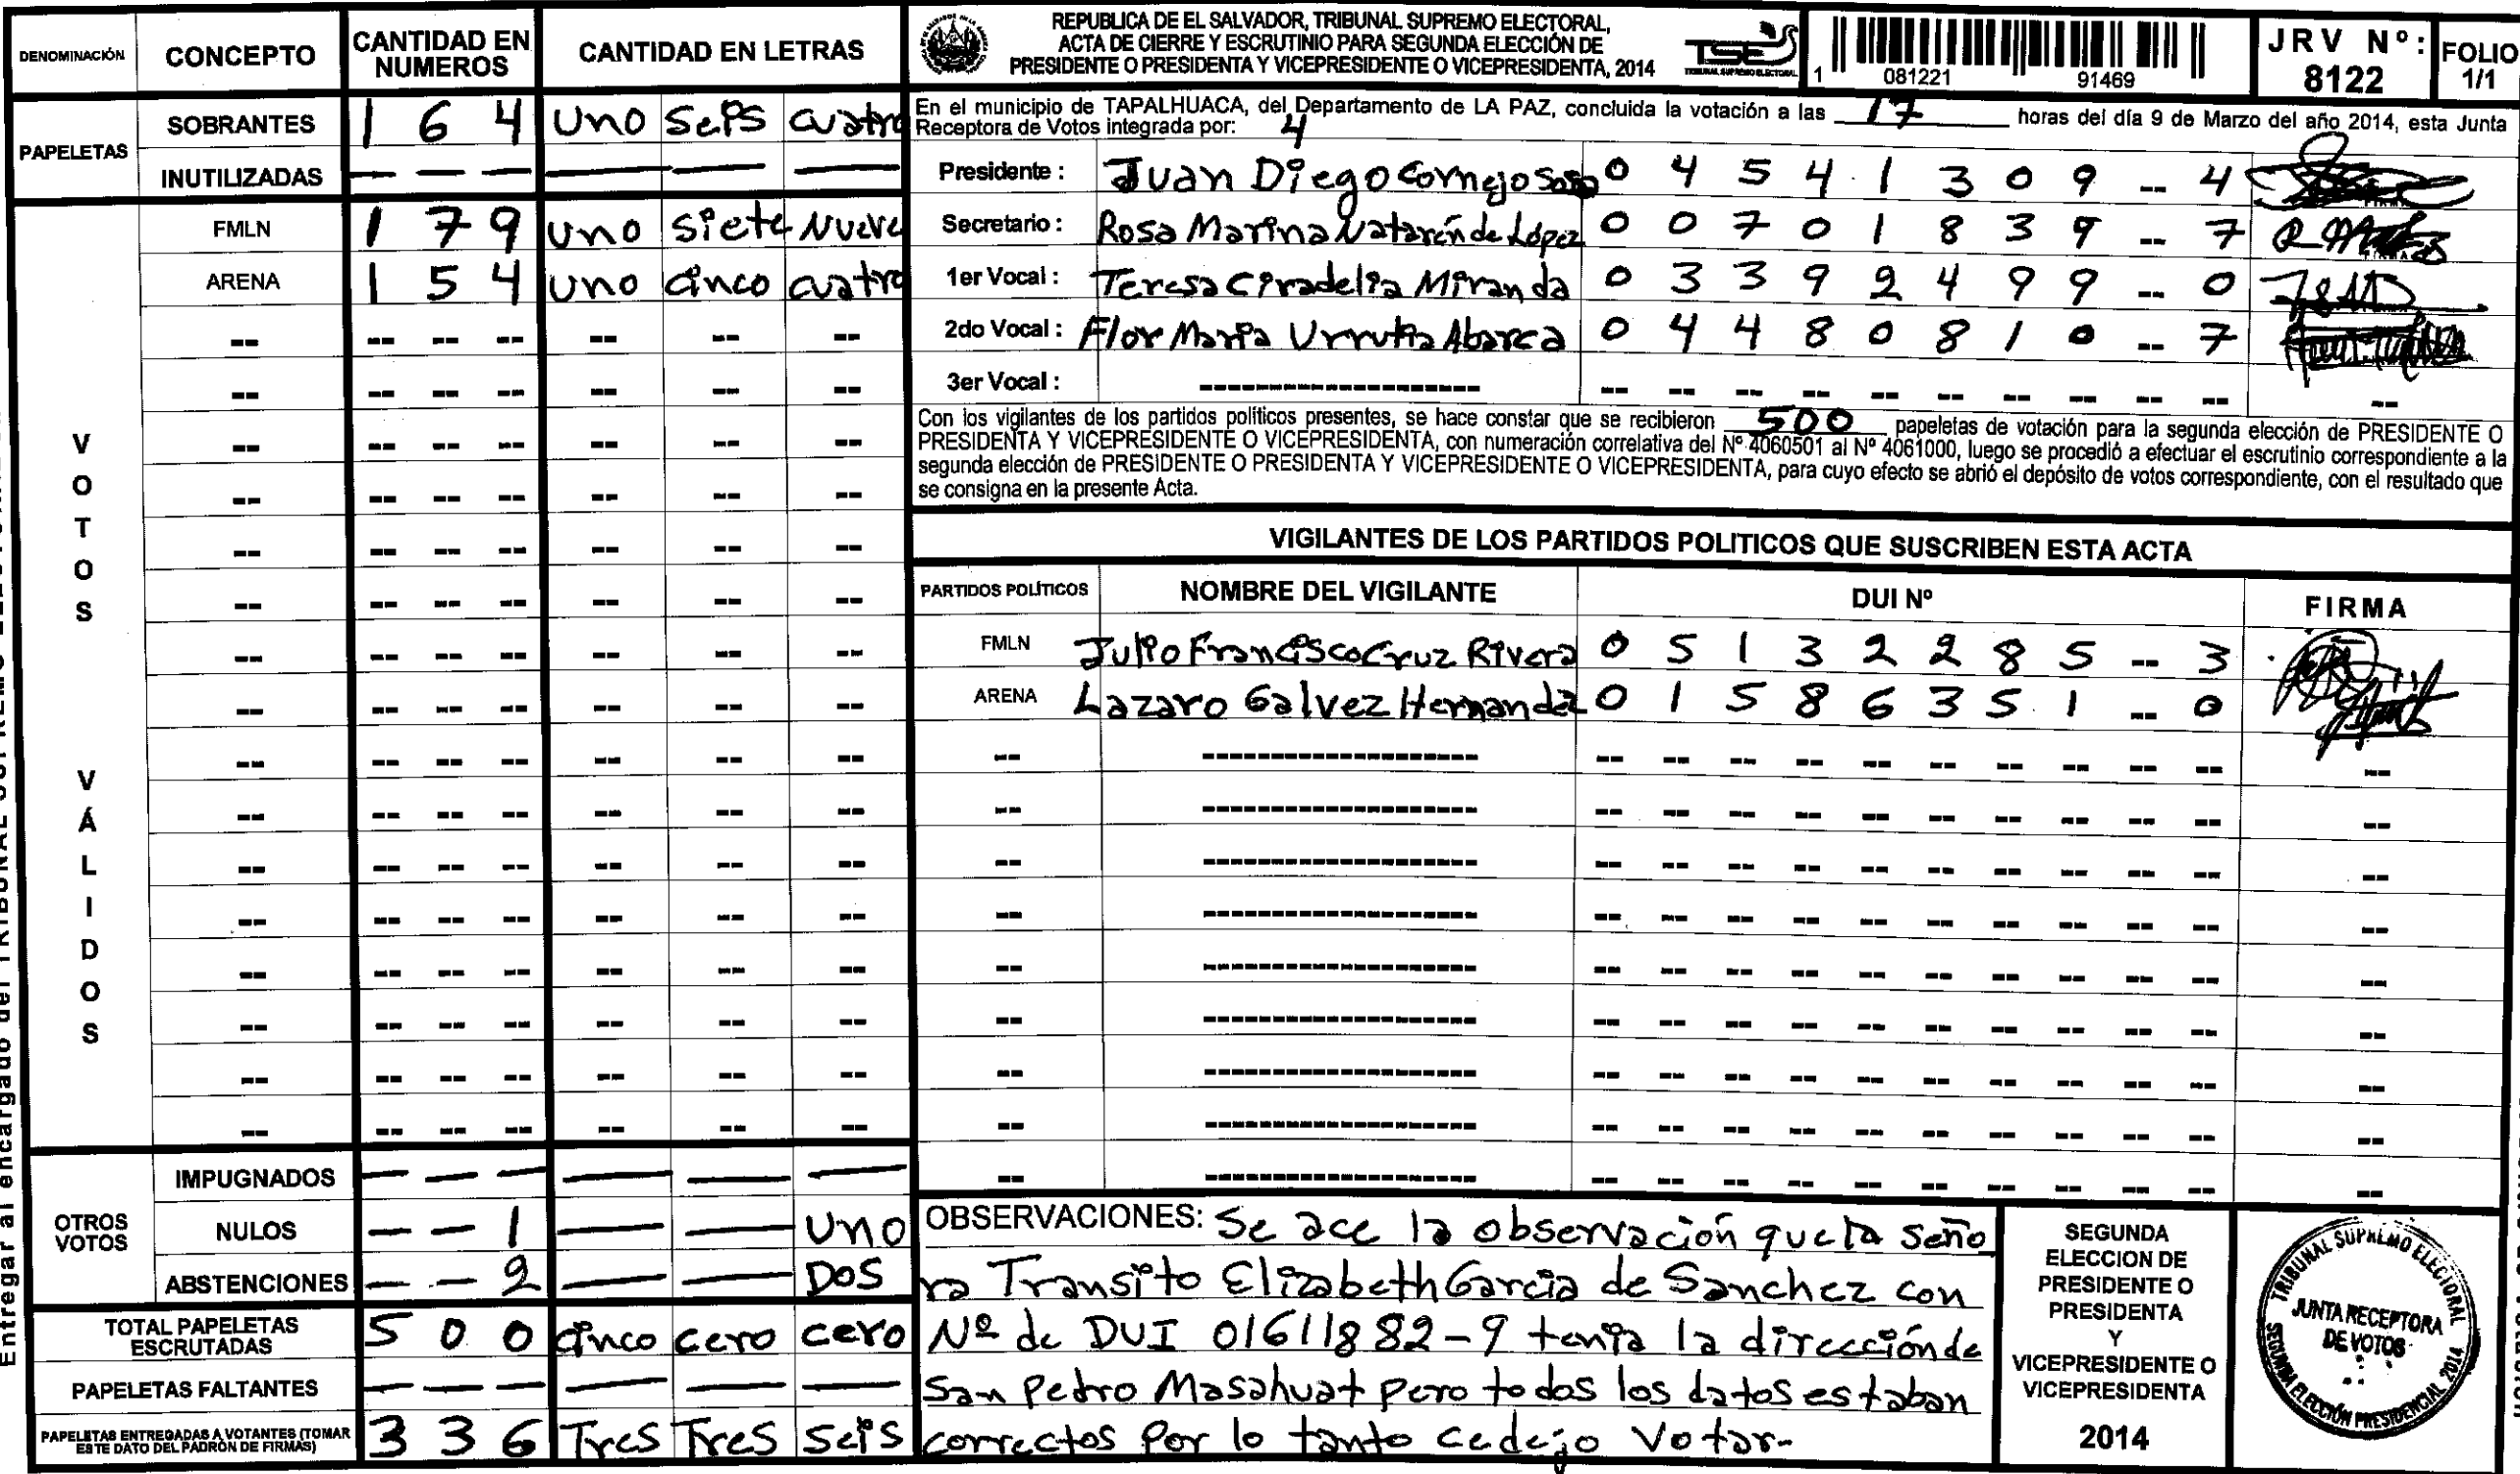 DENOMINACIÓN CONCEPTO CANTIDAD EN NUMEROS CANTIDAD EN LETRAS
PAPELETAS
SOBRANTES 1 6 4 uno seis cuatro
INUTILIZADAS — — — — — —
VOTOS VÁLIDOS
FMLN 1 7 9 uno siete Nueve
ARENA 1 5 4 uno cinco cuatro
OTROS VOTOS
IMPUGNADOS — — — — — —
NULOS — — 1 — — uno
ABSTENCIONES — — 2 — — DOS
TOTAL PAPELETAS ESCRUTADAS 5 0 0 cinco cero cero
PAPELETAS FALTANTES — — — — — —
PAPELETAS ENTREGADAS A VOTANTES (TOMAR ESTE DATO DEL PADRÓN DE FIRMAS) 3 3 6 Tres Tres seis
REPUBLICA DE EL SALVADOR, TRIBUNAL SUPREMO ELECTORAL,
ACTA DE CIERRE Y ESCRUTINIO PARA SEGUNDA ELECCIÓN DE
PRESIDENTE O PRESIDENTA Y VICEPRESIDENTE O VICEPRESIDENTA, 2014
TSE
TRIBUNAL SUPREMO ELECTORAL
1 081221 91469
JRV Nº: 8122
FOLIO 1/1
En el municipio de TAPALHUACA, del Departamento de LA PAZ, concluida la votación a las 17 horas del día 9 de Marzo del año 2014, esta Junta
Receptora de Votos integrada por: 4
Presidente : Juan Diego Cornejo Sosa 0 4 5 4 1 3 0 9 -- 4
Secretario : Rosa Marina Natarén de López 0 0 7 0 1 8 3 9 -- 7
1er Vocal : Teresa Ciradelia Miranda 0 3 3 9 2 4 9 9 -- 0
2do Vocal : Flor María Urrutia Abarca 0 4 4 8 0 8 1 0 -- 7
3er Vocal : --------------------
Con los vigilantes de los partidos políticos presentes, se hace constar que se recibieron 500 papeletas de votación para la segunda elección de PRESIDENTE O
PRESIDENTA Y VICEPRESIDENTE O VICEPRESIDENTA, con numeración correlativa del Nº 4060501 al Nº 4061000, luego se procedió a efectuar el escrutinio correspondiente a la
segunda elección de PRESIDENTE O PRESIDENTA Y VICEPRESIDENTE O VICEPRESIDENTA, para cuyo efecto se abrió el depósito de votos correspondiente, con el resultado que
se consigna en la presente Acta.
VIGILANTES DE LOS PARTIDOS POLITICOS QUE SUSCRIBEN ESTA ACTA
PARTIDOS POLÍTICOS NOMBRE DEL VIGILANTE DUI Nº FIRMA
FMLN Julio Francisco Cruz Rivera 0 5 1 3 2 2 8 5 -- 3
ARENA Lazaro Galvez Hernandez 0 1 5 8 6 3 5 1 -- 0
OBSERVACIONES: Se ace la observación que la seño
ra Transito Elizabeth Garcia de Sanchez con
Nº de DUI 01611882-9 tenia la dirección de
San Pedro Masahuat pero todos los datos estaban
correctos Por lo tanto cedejo Votar-
SEGUNDA
ELECCION DE
PRESIDENTE O
PRESIDENTA
Y
VICEPRESIDENTE O
VICEPRESIDENTA
2014
TRIBUNAL SUPREMO ELECTORAL
JUNTA RECEPTORA
DE VOTOS
SEGUNDA ELECCIÓN PRESIDENCIAL 2014
Entregar al encargado del TRIBUNAL SUPREMO